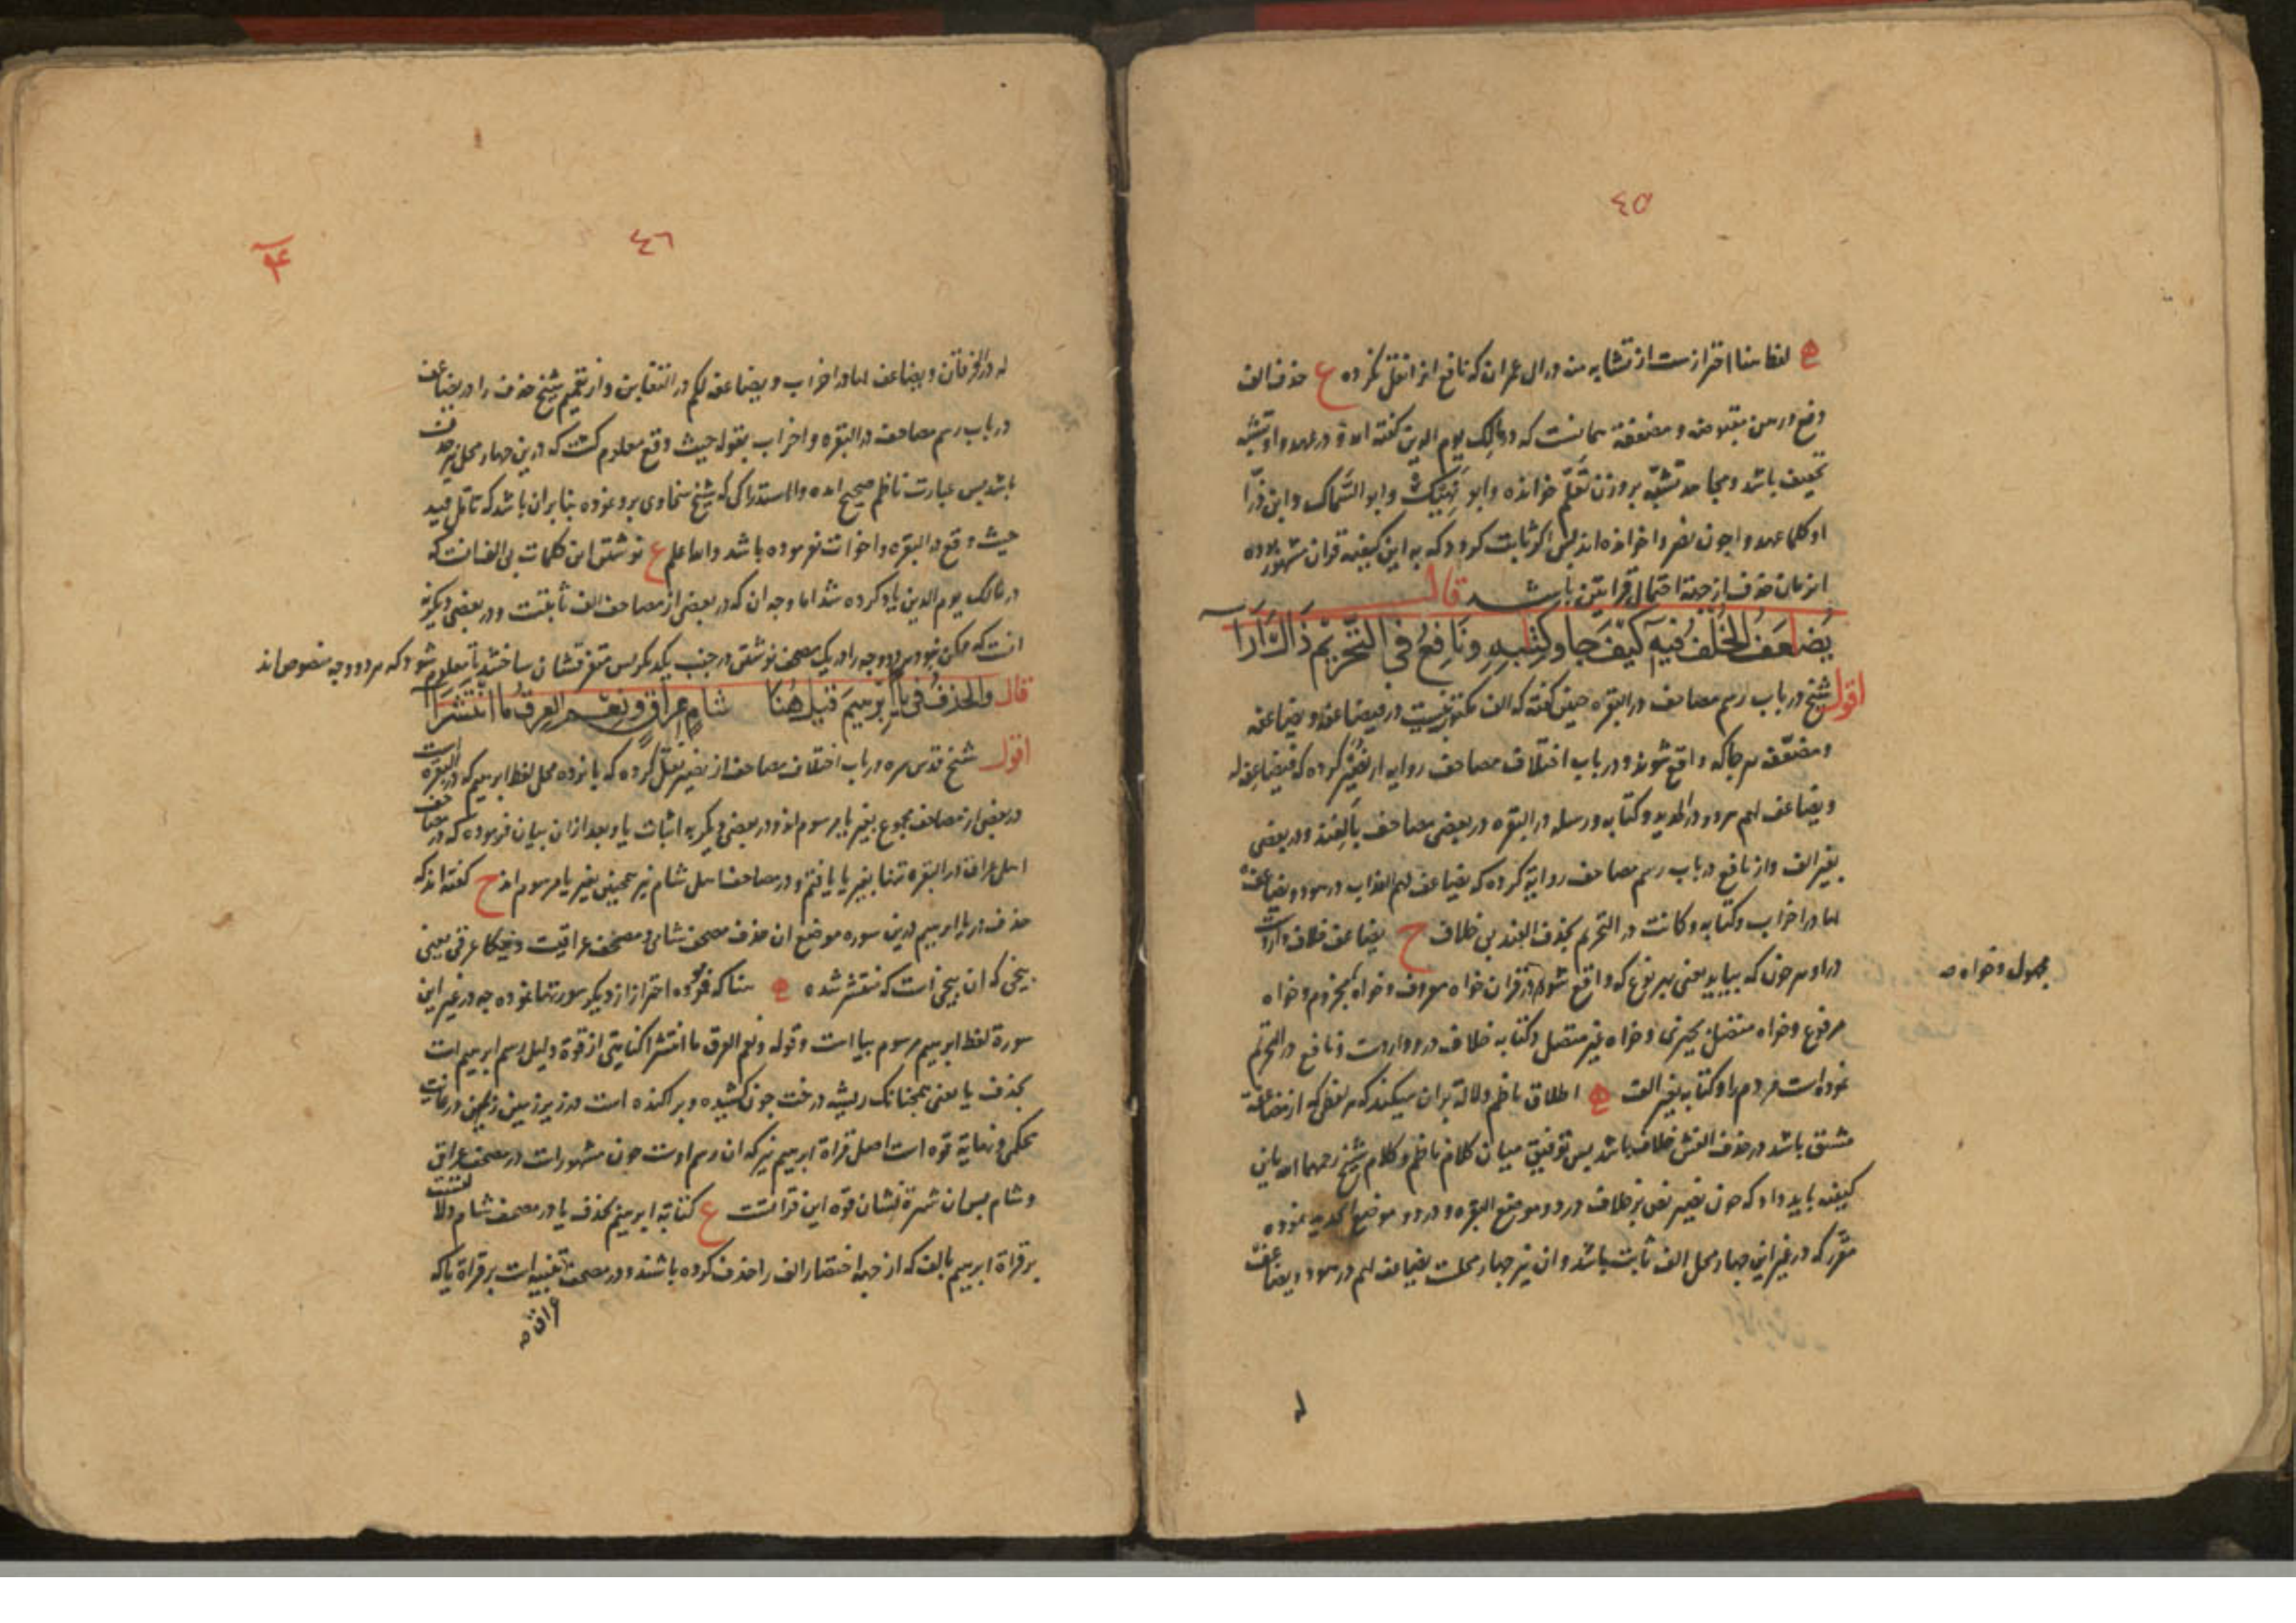 ٤٥
لفظ هنا احتراز ست از تشابه منه در ال عمران که نافع انرا نقل نکرده ع حذف الف
وقع در رهن مقبوضه و مضعفة همانست که در مالک یوم الدین گفته امد و در عهدوا و تشبه
تخفیف باشد و مجاهد تشبّه بر وزن تَعَلّم خوانده و ابو نهیک و ابو السَّماک و ابن
او کلما عهدوا چون نصروا خوانده اند پس اگر ثابت کردد که به این کیفیه قران مشهور بوده
انزمان حذف از جهة احتمال قراتین باشد قال
يُضاعَفُ الخُلْفُ فِيهِ كَيْفَ جَا وكِتٰبِهِ وَنَافِعٌ فِى التّحْرِيْمِ ذَاكَ أَرَآ
اقول شیخ در باب رسم مصاحف در البقره چنین گفته که الف مکتوب نیست در فیضاعفه و یضاعفه
و مضعّفه هر جا که واقع شوند و در باب اختلاف مصاحف روایه از نُصَیْر کرده که فیضاعفه له
و یضاعف لهم هر دو در الحدید و کتابه و رسله در البقره در بعضی مصاحف بالفند و در بعضی
بغیر الف و از نافع در باب رسم مصاحف روایة کرده که یضاعف لهم العذاب در هود و یضاعف
لها در احزاب و کتابه و کانت در التحریم بحذف الفند بی خلاف ح یضاعف خلاف وارد است
در او هر چون که بیاید یعنی بهر نوع که واقع شود در قران خواه معروف و خواه مجزوم و خواه
مجهول و خواه صه
مرفوع و خواه متصل بچیزی و خواه غیر متصل و کتابه خلاف درو وارد ست و نافع در التحریم
نموده است مردم را و کتابه بغیر الف اطلاق ناظم دلالة بران میکند که هر لفظی که از مضاعفة
مشتق باشد در حذف الفش خلاف باشد پس توفیق میان کلام ناظم و کلام شیخ رحمهما الله باین
کیفیه باید داد که چون نصیر نص بر خلاف در دو موضع البقره و در دو موضع الحدید نموده
مقرر که در غیر این چهار محل الف ثابت باشد و ان نیز چهار محلست یضاعف لهم در هود و یضاعف
له
٤٦
له در الفرقان و یضاعف لها در احزاب و یضاعفه لکم در التغابن و از تعمیم شیخ حذف را در یضاعف
در باب رسم مصاحف در البقره و احزاب بقوله حیث وقع معلوم گشت که درین چهار محل نیز حذف
باشد پس عبارت ناظم صحیح امده و الا استدراکی که شیخ سخاوی برو نموده بنابران باشد که تامل قید
حیث وقع در البقره و اخوات نفرموده باشد والله اعلم ع نوشتن این کلمات بی الف انست که
در مالک یوم الدین یاد کرده شد اما وجه ان که در بعضی از مصاحف الف ثابتست و در بعضی دیگر نه
انست که ممکن نبود هر دو وجه را در یک مصحف نوشتن در جنب یکدیگر پس متفرقشان ساختند تا معلوم شود که هر دو وجه منصوص اند
قال والحَذْفُ فى يَاءِ ابْرٰهِيْمَ قِيْلَ هُنَا شَامٍ عِرَاقٍ وَنِعْمَ العِرقُ مَا انْتَشَرَا
اقول شیخ قدس سره در باب اختلاف مصاحف از نصیر نقل کرده که پانزده محل لفظ ابرهیم که در البقره است
در بعضی از مصاحف مجموع بغیر یا مرسوم اند و در بعضی دیگر به اثبات یا و بعد ازان بیان فرموده که در مصاحف
اهل عراق در البقره تنها بغیر یا یافتم و در مصاحف اهل شام نیز همچنین بغیر یا مرسوم اند ح گفته اند که
حذف در یاء ابرهیم درین سوره موضع ان حذف مصحف شامی و مصحف عراقیست و نیکا عرقی یعنی
بیخی که ان بیخی است که منتشر شده هنا که فرموده احتراز از دیگر سورتها نموده چه در غیر این
سورة لفظ ابرهیم مرسوم بیا است و قوله و نعم العرق ما انتشرا کنایتی از قوة دلیل رسم ابرهیم است
بحذف یا یعنی همچنانک ریشه درخت چون کشیده و پراکنده است در زیر زمین زمین در غایت
محکمی و نهایة قوه است اصل قراة ابرهیم نیز که ان رسم اوست چون مشهور است در مصحف عراق
و شام بسان شهرة نشان قوه این قراتست ع کتابة ابرهیم بحذف یا در مصحف شام دلالتست
بر قراة ابرهیم بالف که از جهة اختصار الف را حذف کرده باشند و در مصحف تنبیه است بر قراة یا که
عراق صه